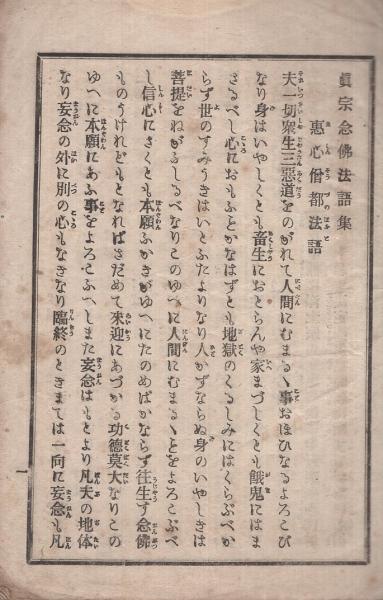 眞宗念佛法語集
惠心僧都法語
夫一切衆生三惡道をのがれて人間にむまるゝ事おほひなるよろこび
なり身はいやしくとも畜生におとらんや家まづしくとも餓鬼にはま
さるべし心におもふことかなはずとも地獄のくるしみにはくらぶべか
らず世のすみうきはいとふたよりなり人かずならぬ身のいやしきは
菩提をねがふしるべなりこのゆへに人間にむまるゝことをよろこぶべ
し信心にさくとも本願ふかきがゆへにたのめばかならず往生す念佛
ものうけれどもとなればさだめて來迎にあづかる功德莫大なりこの
ゆへに本願にあふ事をよろこふへしまた妄念はもとより凡夫の地体
なり妄念の外に別の心もなきなり臨終のときまては一向に妄念も凡
一